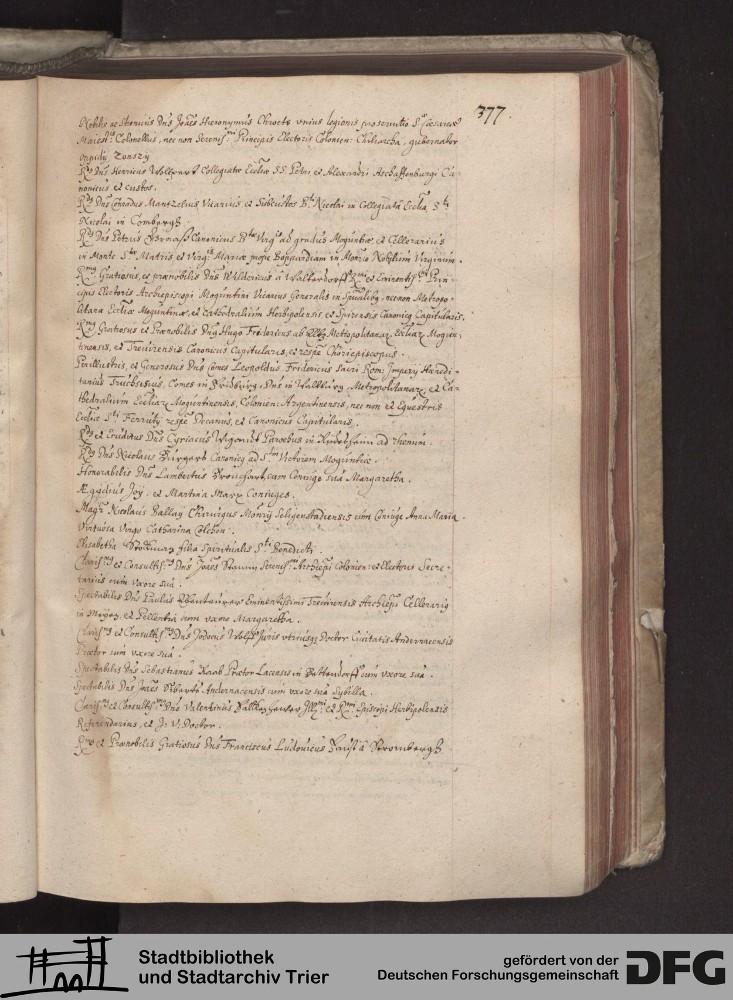 377.
Nobilis ac strenuus Dns Joães Hieronymus unius legionis pro servitio Sac. Caesareae
Maiest:tis Colonellus, nec non Serenis:mi Principis Electoris Colonien: Chiliarcha, gubernator
oppidi Zonszij
Rdus Dns Henricus Collegiatae Ecclae SS. Petri et Alexandri Aschaffenburgi Ca-
nonicus et custos.
Rdus Dns Conradus Mantzelius Vicarius et Subcustos Bti Nicolai in Collegiata Eccla Sti
Nicolai in Combergh.
Rdus Dns Petrus Canonicus Btae Virgis ad gradus Moguntiae, et Cellerarius
in Monte Stae Matris et Virgis Mariae prope in Monrio Nobilium Virginum.
Rmus Gratiosus, et praenobilis Dns Wildericus à Walderdorff Rmi et Eminentis:mi Prin-
cipis Electoris Archiepiscopi Moguntini Vicarius Generalis in Spualibus, nec non Metropo-
litanae Eccliae Moguntinae, et Cathedralium Herbipolensis et Spirensis Canonicus Capitularis.
Rmus Gratiosus et Praenobilis Dns Hugo Fridericus ab Eltz Metropolitanar: Ecclar: Mogun-
tinensis, et Trevirensis Canonicus Capitularis, et respe Choriepiscopus.
Perillustris, et Generosus Dns Comes Leopoldus Fridericus Sacri Rom: Imperij Haredi-
tarius Truchsesius, Comes in Fridburg, Dns in Waldburg, Metropolitanar: et Ca-
thedralium Ecclar: Moguntinensis, Colonien: Argentinensis, nec non et Equestris
Eccliae Sti Ferrutij respe Decanus, et Canonicus Capitularis.
Rdus et Eruditus Dns Cyriacus Parochus in ad Rhenum.
Rdus Dns Nicolaus Canonicus ad Stum Victorem Moguntiae.
Honorabilis Dns Lambertus cum Coniuge suâ Margaretha.
Ægydius Joy, et Martina Marx Coniuges.
Magr Nicolaus Ballay Chirurgus Monrij Seligenstadiensis cum Coniuge Anna Maria.
Virtuosa Virgo Catharina Colchon.
Elisabetha filia spiritualis Sti Benedicti.
Clariss:mus et Consultiss:mus Dns Joães Serenis:mi Archiepi Colonien: et Electoris Secre-
tarius cum uxore suâ.
Spectabilis Dns Paulus Eminentissimi Trevirensis Archiepi Cellerarius
in Meyen, et Pellentia cum uxore Margaretha.
Clariss:mus et Consultiss:mus Dns Jodocus Wolff Juris utriusque Doctor Civitatis Andernacensis
Praetor cum uxore suâ.
Spectabilis Dns Sebastianus Raab Praetor Lacensis in cum uxore suâ.
Spectabilis Dns Joães Andernacensis cum uxore suâ Sybilla.
Clariss:mus et Consultiss:mus Dns Valentinus Illmi et Rmi Episcopi Herbipolensis
Referendarius, et J: V: Doctor.
Rmus et Praenobilis Gratiosus Dns Franciscus Ludovicus Faust à Strombergh
Stadtbibliothek
und Stadtarchiv Trier
gefördert von der
Deutschen Forschungsgemeinschaft
DFG